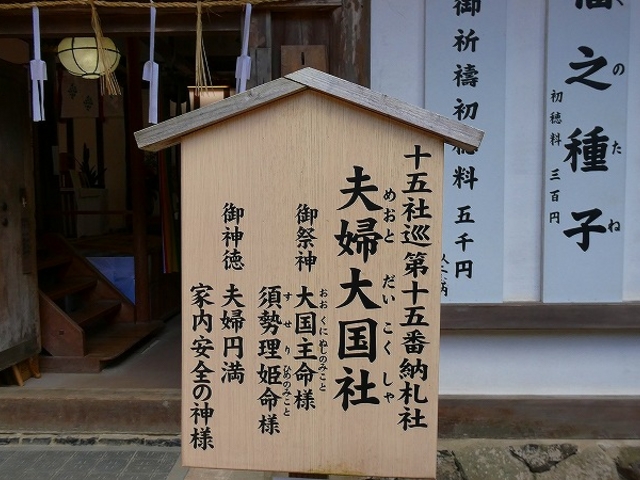 御祈禱初穂料 五千円
之種子
のたね
初穂料 三百円
十五社巡第十五番納札社
夫婦大国社
めおと だいこくしゃ
御祭神 大国主命様
おおくにぬしのみこと
須勢理姫命様
すせりひめのみこと
御神徳 夫婦円満
家内安全の神様